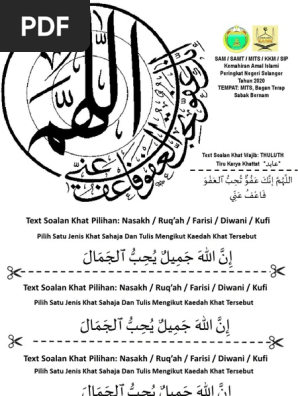 PDF
اللهم إنك عفو تحب العفو فاعف عني
SAM / SAMT / MITS / KKM / SIP
Kemahiran Amal Islami
Peringkat Negeri Selangor
Tahun 2020
TEMPAT: MITS, Bagan Terap
Sabak Bernam
Text Soalan Khat Wajib: THULUTH
Tiru Karya Khattat "عابد"
اللَّهُمَّ إِنَّكَ عَفُوٌّ تُحِبُّ الْعَفْوَ
فَاعْفُ عَنِّي
Text Soalan Khat Pilihan: Nasakh / Ruq'ah / Farisi / Diwani / Kufi
Pilih Satu Jenis Khat Sahaja Dan Tulis Mengikut Kaedah Khat Tersebut
إِنَّ اللهَ جَمِيلٌ يُحِبُّ ٱلْجَمَالَ
Text Soalan Khat Pilihan: Nasakh / Ruq'ah / Farisi / Diwani / Kufi
Pilih Satu Jenis Khat Sahaja Dan Tulis Mengikut Kaedah Khat Tersebut
إِنَّ اللهَ جَمِيلٌ يُحِبُّ ٱلْجَمَالَ
Text Soalan Khat Pilihan: Nasakh / Ruq'ah / Farisi / Diwani / Kufi
Pilih Satu Jenis Khat Sahaja Dan Tulis Mengikut Kaedah Khat Tersebut
إِنَّ اللهَ جَمِيلٌ يُحِبُّ ٱلْجَمَالَ